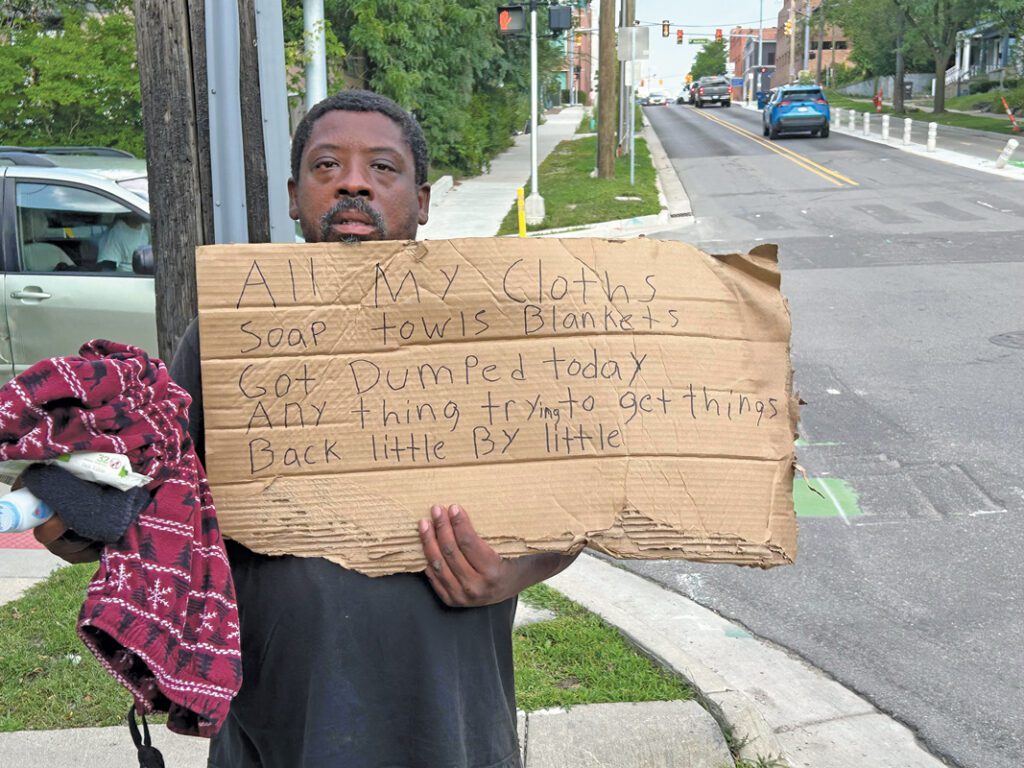 All My Cloths
Soap towls Blankets
Got Dumped today
Any thing trying to get things
Back little By little
32